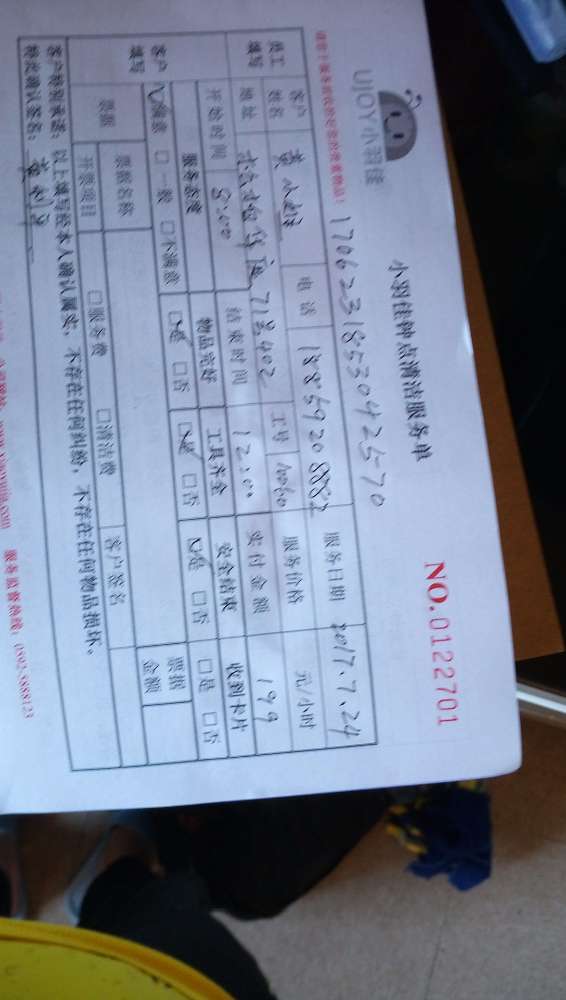 UJOY小羽佳
小羽佳钟点清洁服务单
NO.0122701
1706231853042570
员工填写 客户姓名 电话 服务日期 2017.7.24
地址 工号 服务价格 元/小时
开始时间 8:00 结束时间 12:00 实付金额 199
客户填写 服务态度 物品完好 工具齐全 安全结束 收到卡片
满意 □一般 □不满意 是 □否 是 □否 是 □否 □是 □否
票据 票据名称 票据金额
开票项目 □服务费 □清洁费 客户签名
客户特别承诺：以上填写经本人确认属实，不存在任何纠纷，不存在任何物品损坏。
特此确认签名：
服务监督热线：0592-5888123